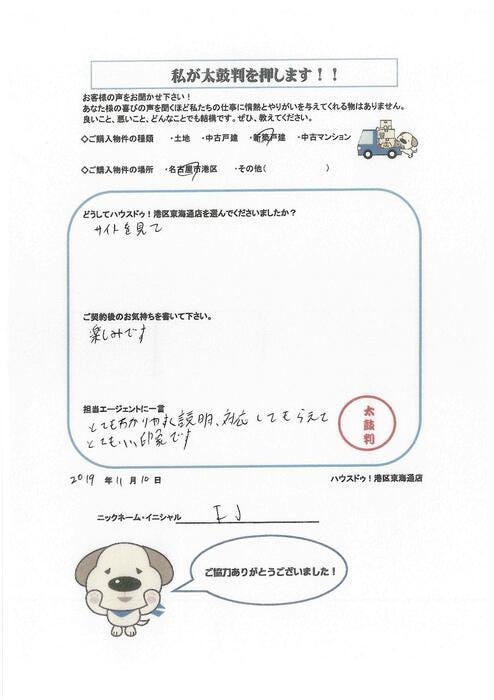 私が太鼓判を押します！！
お客様の声をお聞かせ下さい！
あなた様の喜びの声を聞くほど私たちの仕事に情熱とやりがいを与えてくれる物はありません。
良いこと、悪いこと、どんなことでも結構です。ぜひ、教えてください。
◇ご購入物件の種類 ・土地 ・中古戸建 ・新築戸建 ・中古マンション
◇ご購入物件の場所 ・名古屋市港区 ・その他（ ）
どうしてハウスドゥ！港区東海通店を選んでくださいましたか？
サイトを見て
ご契約後のお気持ちを書いて下さい。
楽しみです
担当エージェントに一言
とてもわかりやすく説明、対応してもらえて
とてもいい印象です
太鼓判
2019 年 11 月 10 日
ハウスドゥ！港区東海通店
ニックネーム・イニシャル I J
ご協力ありがとうございました！